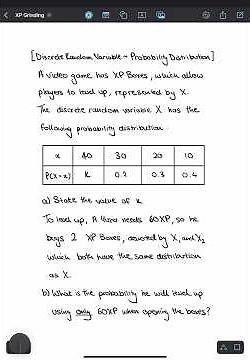 XP Grinding
[Discrete Random Variable - Probability Distribution]
A video game has XP Boxes, which allow
players to level up, represented by X.
The discrete random variable X has the
following probability distribution.
x 40 30 20 10
P(X=x) k 0.2 0.3 0.4
a) State the value of k
To level up, A User needs 60XP, so he
buys 2 XP Boxes, denoted by X₁ and X₂
which both have the same distribution
as X.
b) What is the probability he will level up
using only 60XP when opening the boxes?